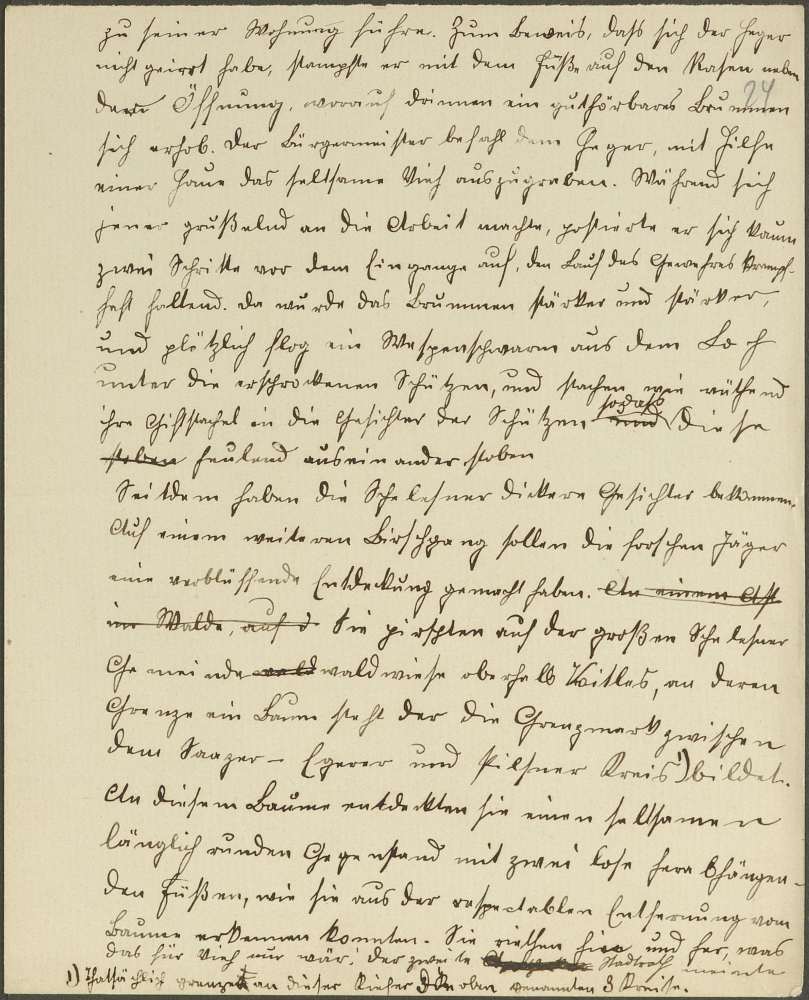 zu seiner Wohnung führe. Zum Beweis, dass sich der Heger
nicht geirrt habe, stampfte er mit dem Füße auf den Rasen neben
24
der Öffnung, worauf drinnen ein guthörbares Brummen
sich erhob. Der Bürgermeister befahl dem Heger, mit Hilfe
einer Haue das seltsame Vieh auszugraben. Während sich
jener gruselnd an die Arbeit machte, postierte er sich kaum
zwei Schritte vor dem Eingange auf, den Lauf des Gewehres krampf-
haft haltend. Da wurde das Brummen stärker und stärker,
und plötzlich flog ein Wespenschwarm aus dem Loch
unter die erschrockenen Schützen, und stachen wie wüthend
ihre Giftstachel in die Gesichter der Schützen und sodass diese
stoben heulend auseinander stoben
Seitdem haben die Schelesner dickere Gesichter bekommen.
Auf einem weiteren Birschgang sollen die forschen Jäger
eine verblüffende Entdeckung gemacht haben. An einem Ast
im Walde, auf d Sie pirschten auf der großen Schelesner
Gemeinde wald waldwiese oberhalb Witles, an deren
Grenze ein Baum steht der die Grenzmark zwischen
dem Saazer- Egerer und Pilsner Kreis 1) bildet.
An diesem Baume entdeckten sie einen seltsamen
länglich runden Gegenstand mit zwei lose herabhängen-
den Füßen, wie sie aus der respectablen Entfernung vom
Baume erkennen konnten. Sie riethen hin und her, was
das für Vieh nur wär; der zweite Stadtrath meinte
1) Thatsächlich grenzen an dieser Kiefer die oben genannten 3 Kreise.